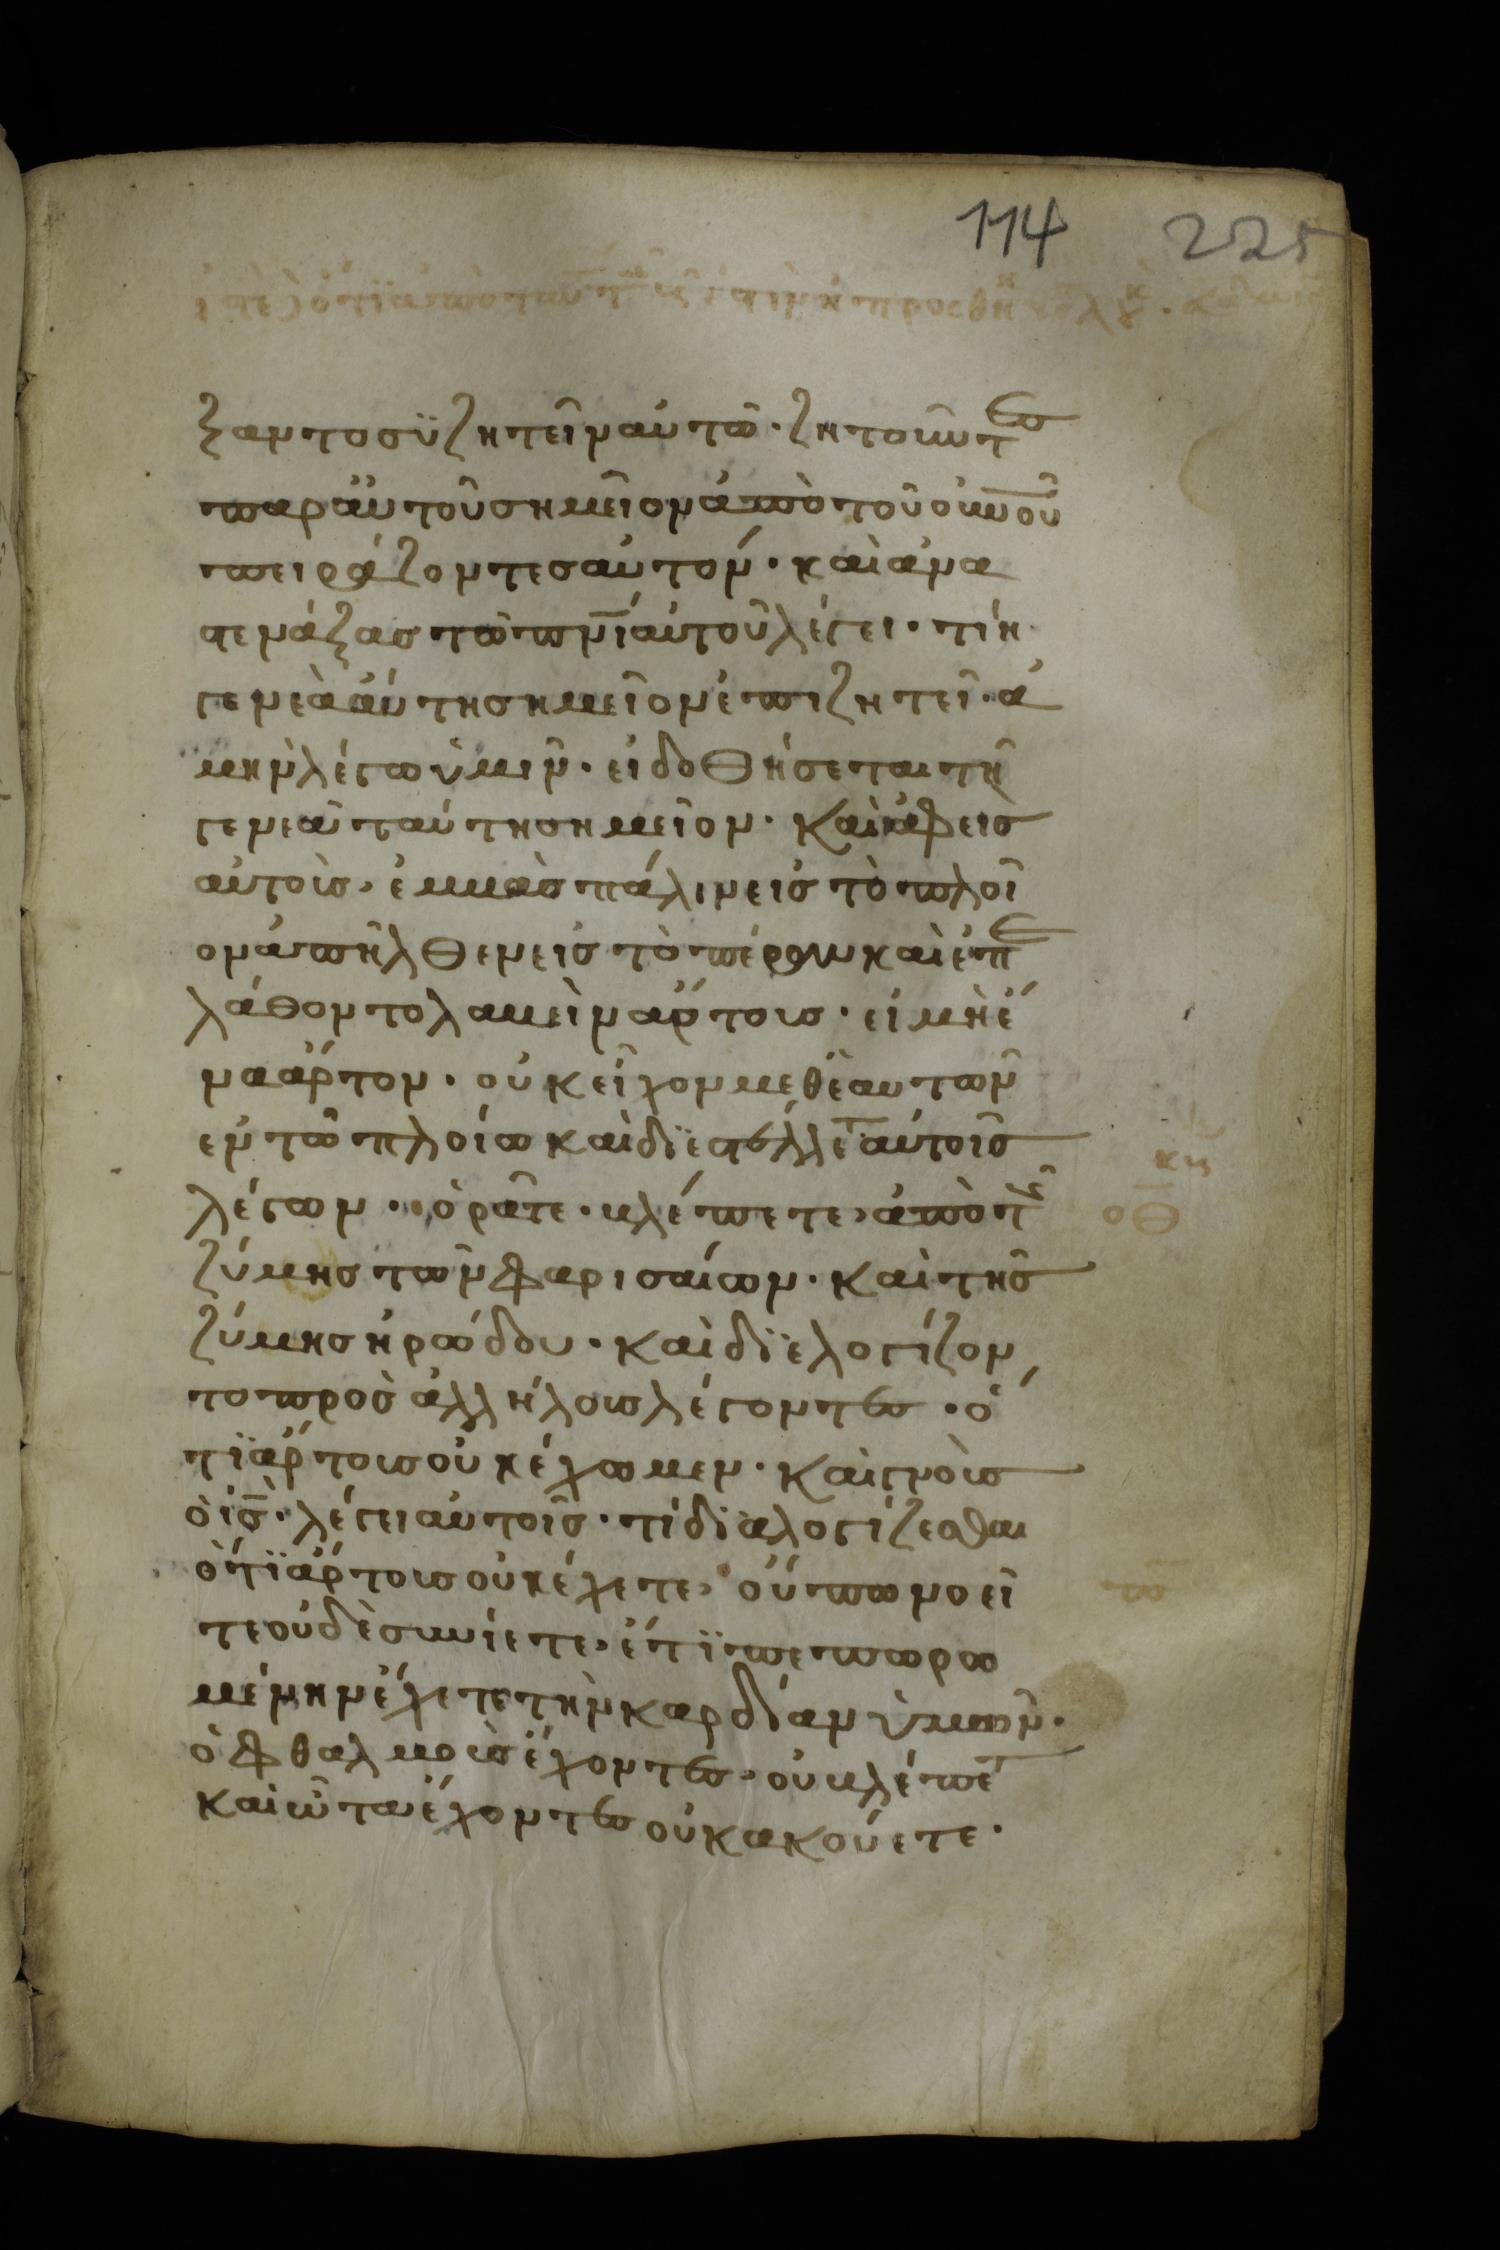 114 225
ξαντο συζητεῖν αὐτῶ· ζητοῦντες
παρ αὐτοῦ σημεῖον ἀπὸ τοῦ οὐνοῦ
πειράζοντες αὐτόν· καὶ ἀνα
στενάξας τῶ πνι αὐτοῦ λέγει· τί ἡ
γενεὰ αὕτη σημεῖον ἐπιζητεῖ· ἀ
μὴν λέγω ὑμῖν· εἰ δοθήσεται τῆ
γενεᾶ ταύτη σημεῖον· Καὶ ἀφεὶς
αὐτοὺς, ἐμβὰς πάλιν εἰς τὸ πλοῖ
ον ἀπῆλθεν εἰς τὸ πέραν καὶ ἐπε
λάθοντο λαβεῖν ἄρτους· εἰ μὴ ἕ
να ἄρτον· οὐκ εἶχον μεθ ἑαυτῶν
ἐν τῶ πλοίω καὶ διεστέλλετ αὐτοῖς
λέγων· ὁρᾶτε· βλέπετε, ἀπὸ τῆς
ζύμης τῶν φαρισαίων· καὶ τῆς
ζύμης ἡρώδου· καὶ διελογίζον
το πρὸς ἀλλήλους λέγοντες· ὅ
τι ἄρτους οὐκ ἔχωμεν· Καὶ γνοὺς
ὁ ις· λέγει αὐτοῖς· τί διαλογίζεσθαι
ὅτι ἄρτους οὐκ ἔχετε, οὔπω νοεῖ
τε οὐδὲ συνίετε, ἔτι πεπωρω
μένην ἔχετε τὴν καρδίαν ὑμῶν·
ὀφθαλμοὺς ἔχοντες, οὐ βλέπετ
καὶ ὦτα ἔχοντες οὐκ ἀκούετε·